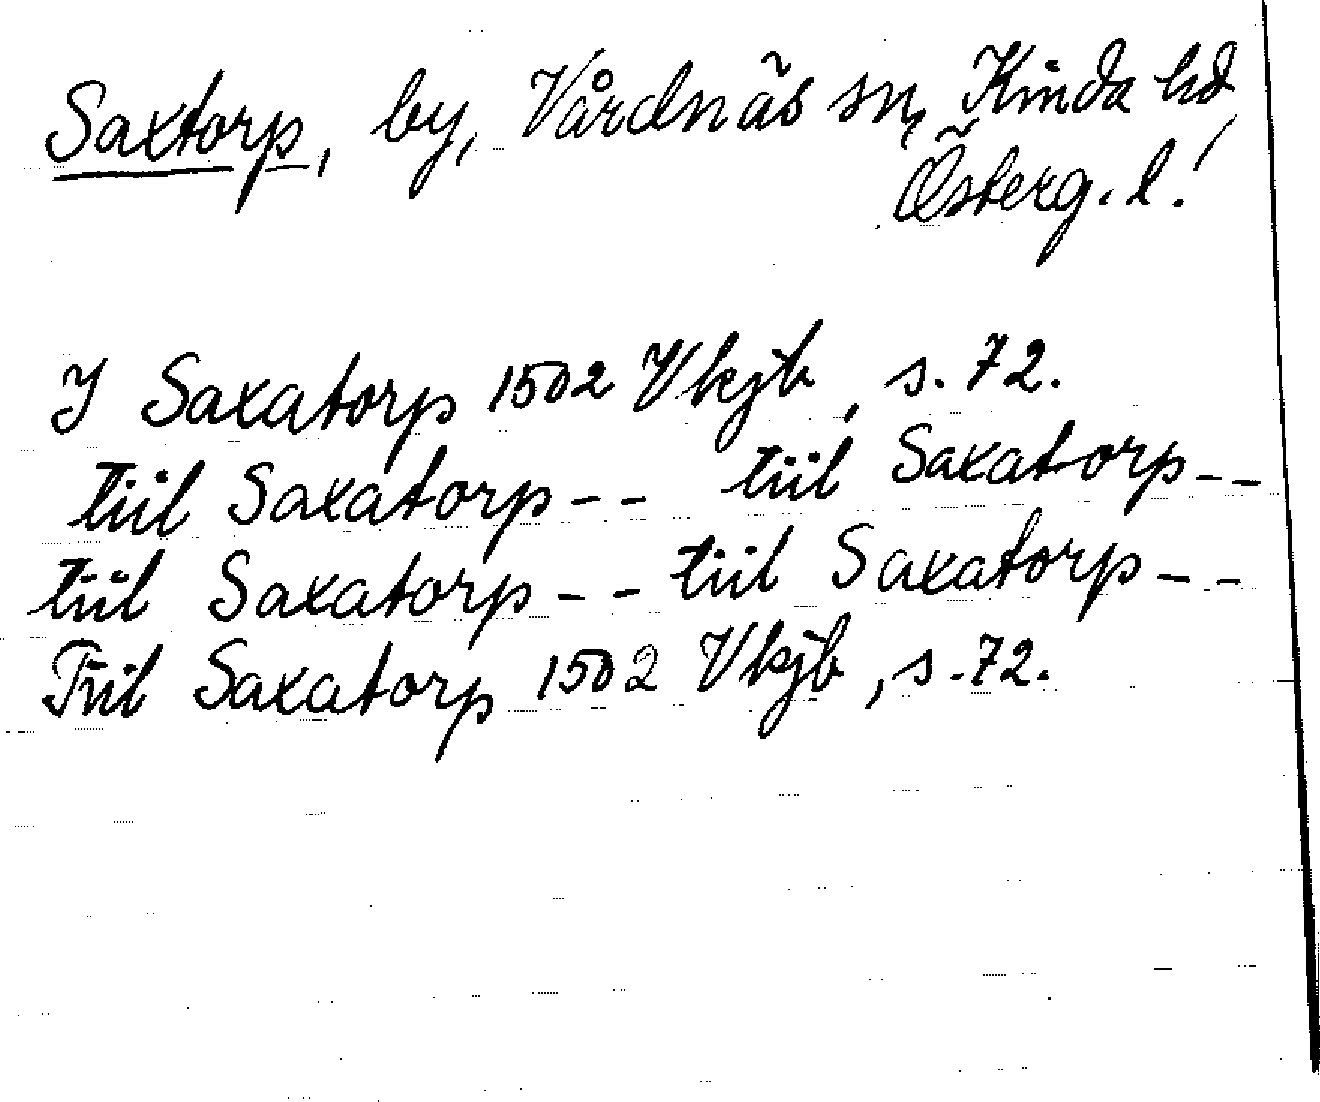 Saxtorp, by, Vårdnäs sn, Kinda hd,
Österg. l.
I Saxatorp 1502 Vkjb, s. 72.
tiil Saxatorp - - tiil Saxatorp - -
tiil Saxatorp - - tiil Saxatorp - -
Tiil Saxatorp 1502 Vkjb, s. 72.